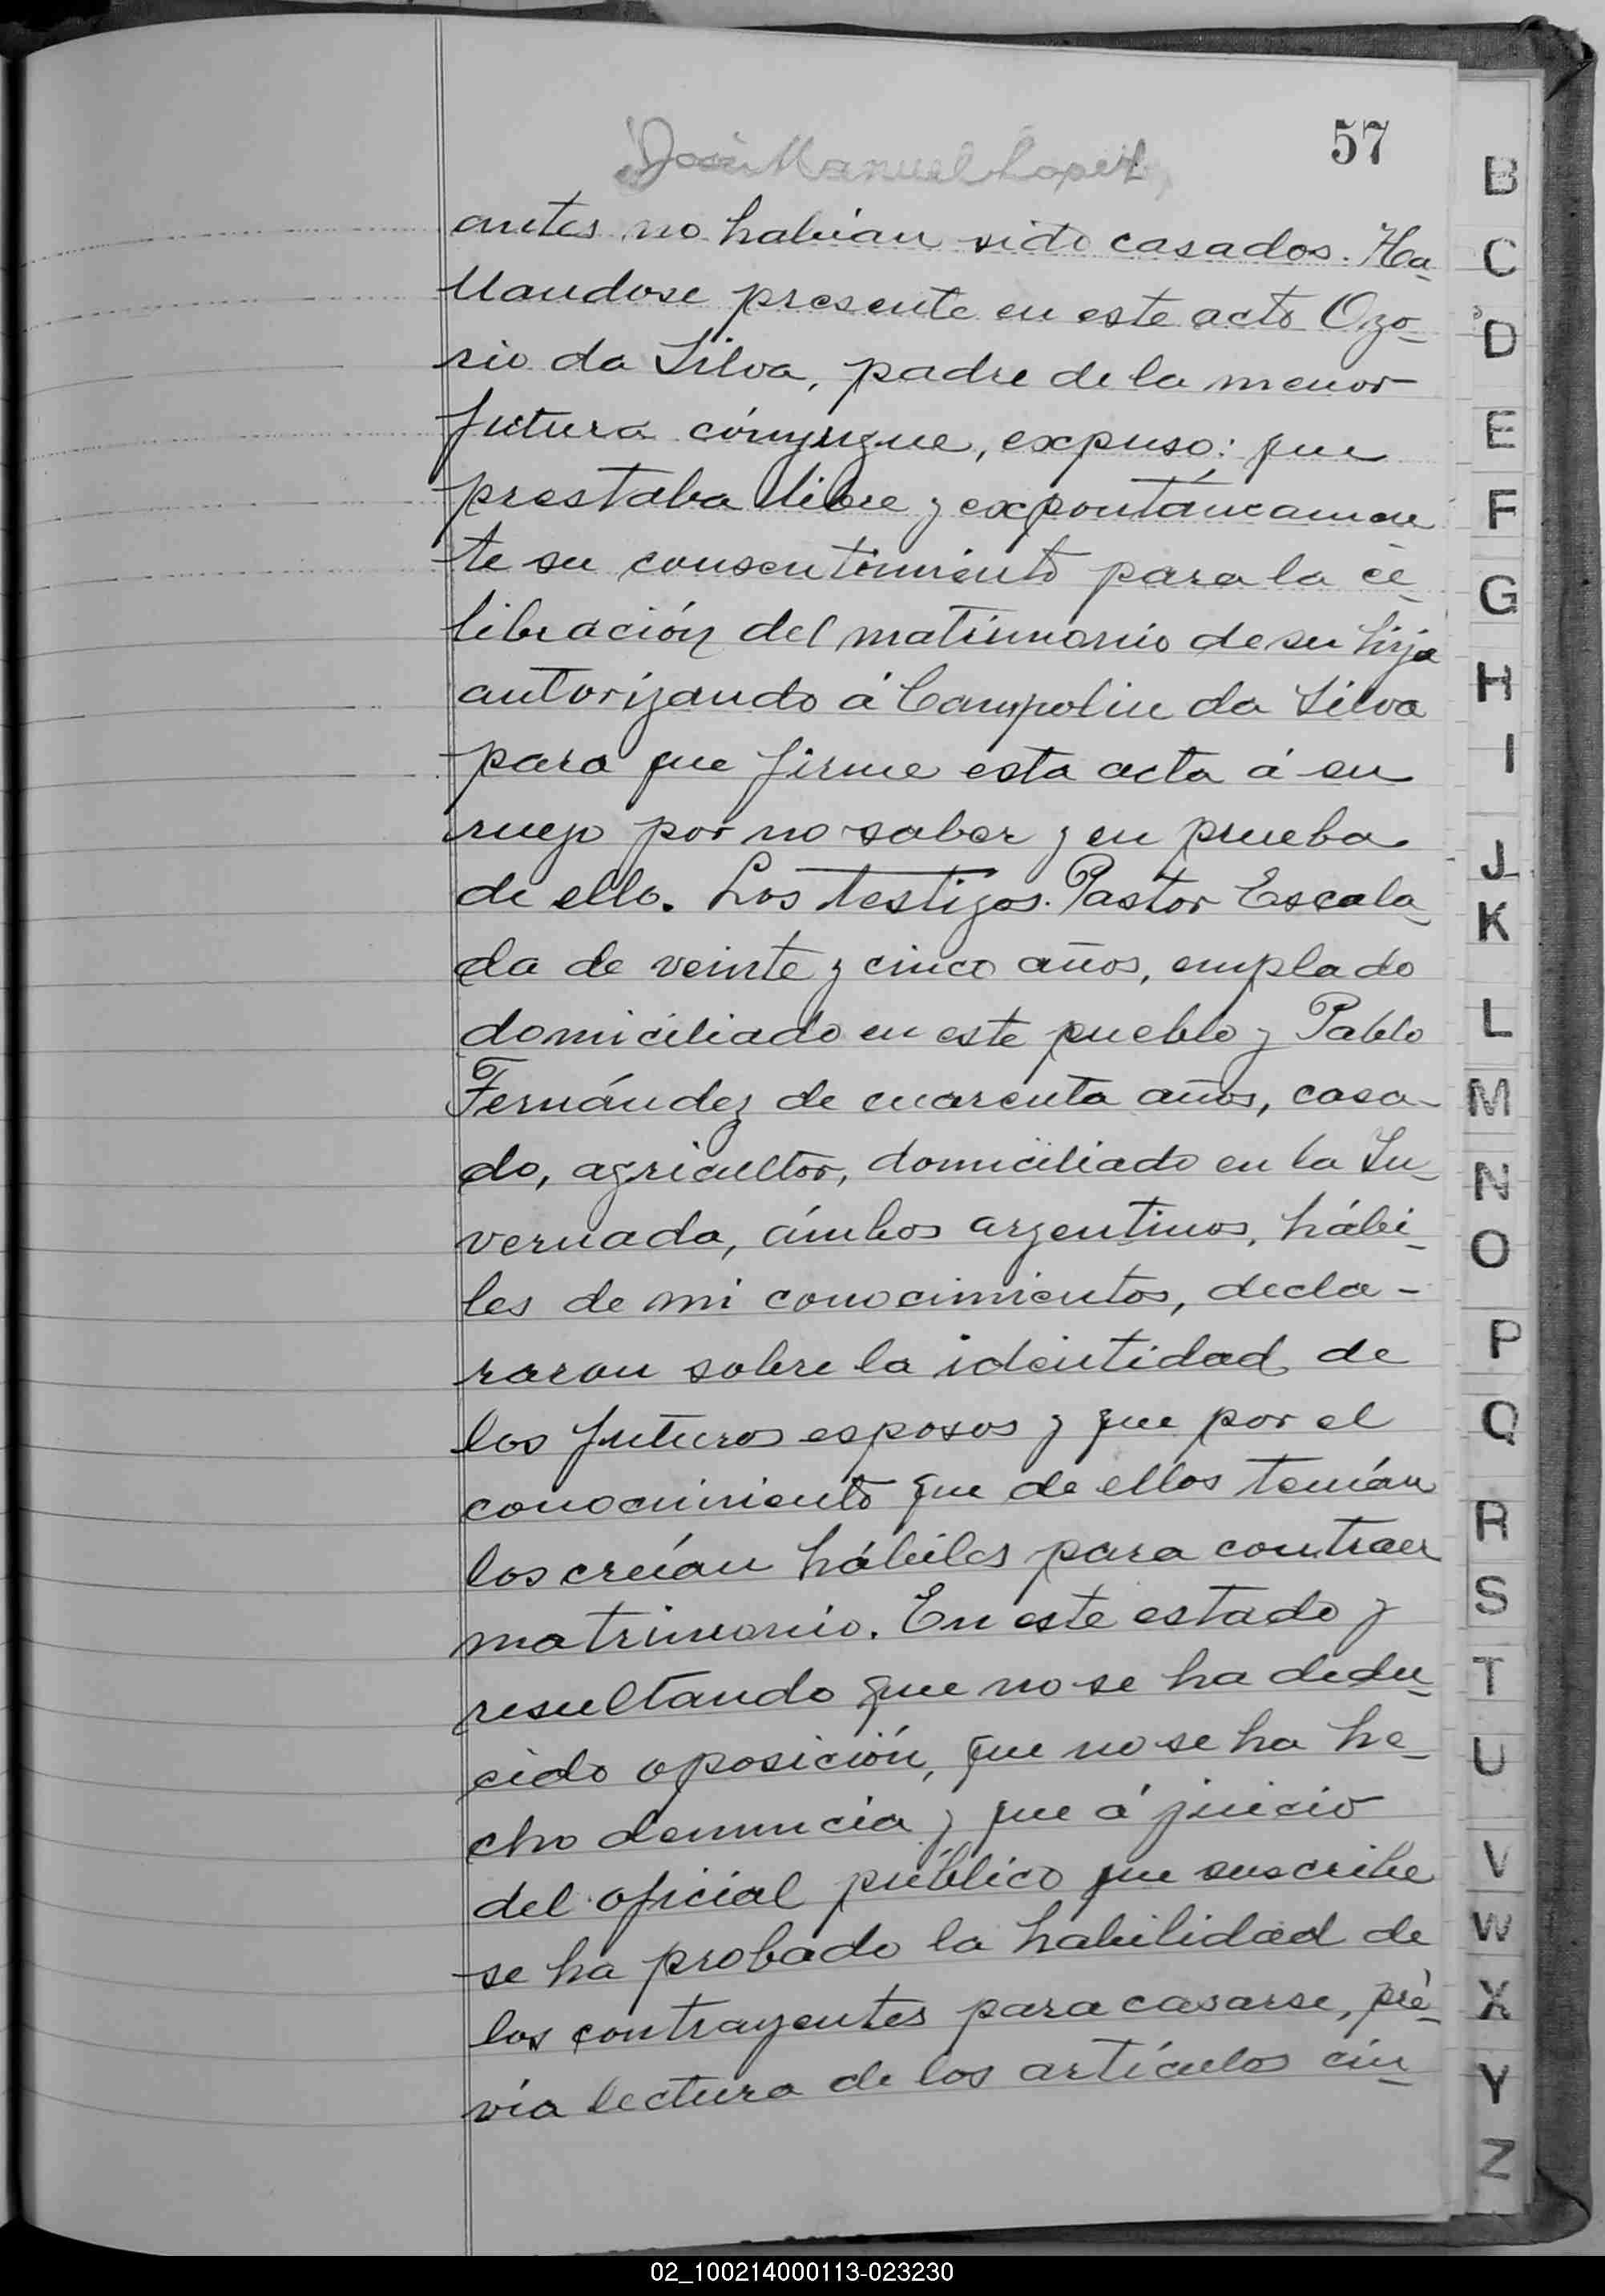 57
José Manuel Lopez
antes no habían sido casados. Ha-
llandose presente en este acto Ozo-
rio da Silva, padre de la menor
futura cónyugue, expuso: que
prestaba libre y expontáneamen
te su consentimiento para la ce-
libración del matrimonio de su hija
autorizando á Campolin da Silva
para que firme esta acta á su
ruego por no saber y en prueba
de ello. Los testigos. Pastor Escala-
da de veinte y cinco años, emplado
domiciliado en este pueblo y Pablo
Fernández de cuarenta años, casa-
do, agricultor, domiciliado en la In-
vernada, ámbos argentinos, hábi-
les de mi conocimientos, decla-
raron sobre la identidad de
los futuros esposos y que por el
conocimiento que de ellos tenían
los creían hábiles para contraer
matrimonio. En este estado y
resultando que no se ha dedu-
cido oposición, que no se ha he-
cho denuncia y que á juicio
del oficial público que suscribe
se ha probado la habilidad de
los contrayentes para casarse, pré-
via lectura de los artículos cin-
B
C
D
E
F
G
H
I
J
K
L
M
N
O
P
Q
R
S
T
U
V
W
X
Y
Z
02_100214000113-023230